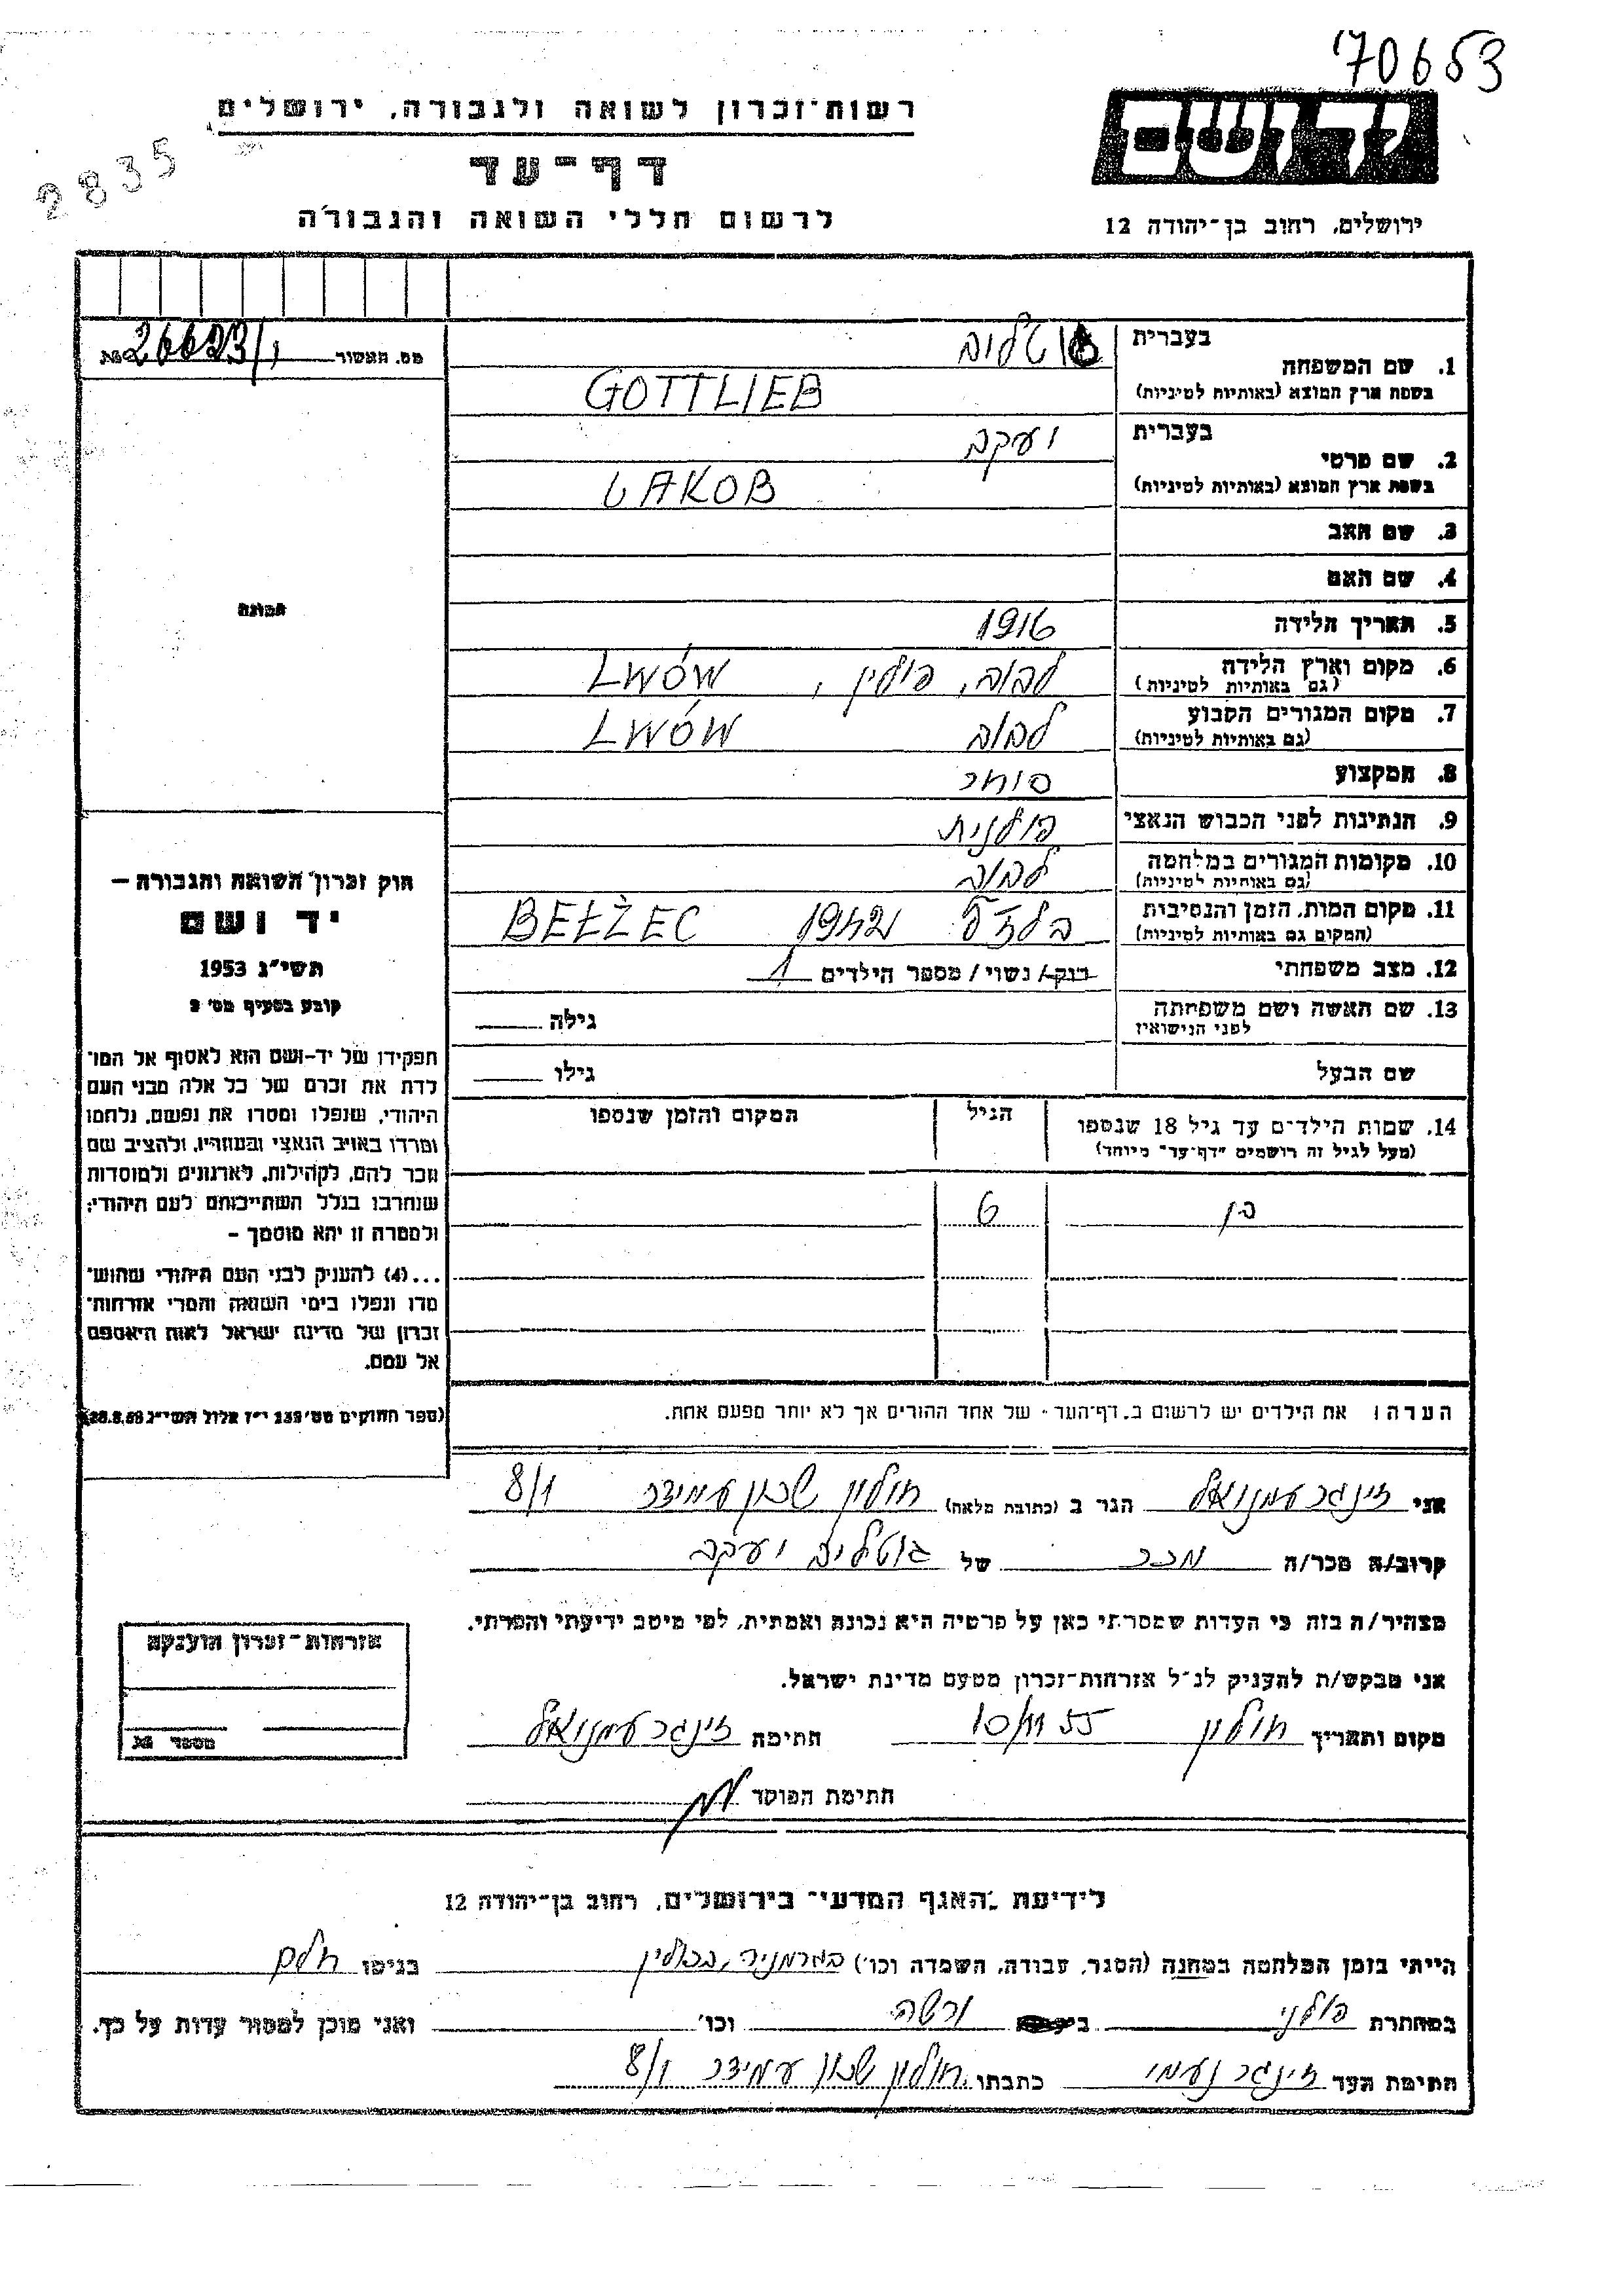 70653
רשות־זכרון לשואה ולגבורה, ירושלים
יד ושם
2835
דף־עד
לרשום חללי השואה והגבורה
ירושלים, רחוב בן־יהודה 12
בעברית גוטליב
1. שם המשפחה
בשפת ארץ המוצא (באותיות לטיניות) GOTTLIEB
מס. האשור 26623/1 №
בעברית יעקב
2. שם פרטי
בשפת ארץ המוצא (באותיות לטיניות) JAKOB
3. שם האב
4. שם האם
5. תאריך הלידה 1916
6. מקום וארץ הלידה לבוב, פולין, LWÓW
(גם באותיות לטיניות)
7. מקום המגורים הקבוע לבוב LWÓW
(גם באותיות לטיניות)
8. המקצוע סוחר
9. הנתינות לפני הכבוש הנאצי פולנית
10. מקומות המגורים במלחמה לבוב
(גם באותיות לטיניות)
11. מקום המות, הזמן והנסיבות בלזץ 1942 BEŁŻEC
(המקום גם באותיות לטיניות)
12. מצב משפחתי רווק/ נשוי/ מספר הילדים 1
13. שם האשה ושם משפחתה גילה
לפני הנישואין
שם הבעל גילו
14. שמות הילדים עד גיל 18 שנספו הגיל המקום והזמן שנספו
(מעל לגיל זה רושמים "דף־עד" מיוחד)
בן 6
תמונה
חוק זכרון השואה והגבורה —
יד ושם
תשי"ג 1953
קובע בסעיף מס' 2
תפקידו של יד-ושם הוא לאסוף אל המו־
לדת את זכרם של כל אלה מבני העם
היהודי, שנפלו ומסרו את נפשם, נלחמו
ומרדו באויב הנאצי ובעוזריו, ולהציב שם
וזכר להם, לקהילות, לארגונים ולמוסדות
שנחרבו בגלל השתייכותם לעם היהודי;
ולמטרה זו יהא מוסמך –
...(4) להעניק לבני העם היהודי שהוש־
מדו ונפלו בימי השואה והמרי אזרחות־
זכרון של מדינת ישראל לאות היאספם
אל עמם.
(ספר החוקים מס' 132 י"ז אלול תשי"ג 28.8.53)
הערה: את הילדים יש לרשום ב„דף-העד" של אחד ההורים אך לא יותר מפעם אחת.
אני זינגר עמנואל הגר ב (כתובת מלאה) חולון שכון עמידר 8/1
קרוב/ה מכר/ה מכר של גוטליב יעקב
מצהיר/ה בזה כי העדות שמסרתי כאן על פרטיה היא נכונה ואמתית, לפי מיטב ידיעתי והכרתי.
אני מבקש/ת להעניק לנ"ל אזרחות-זכרון מטעם מדינת ישראל.
מקום ותאריך חולון 10/11 55 חתימה זינגר עמנואל
חתימת הפוקד
אזרחות-זכרון הוענקה
מספר №
לידיעת „האגף המדעי" בירושלים, רחוב בן־יהודה 12
הייתי בזמן המלחמה במחנה (הסגר, עבודה, השמדה וכו') בגרמניה, ברלין בגיטו חלם
במחתרת פולני ורשה וכו' ואני מוכן למסור עדות על כך.
חתימת העד זינגר נעמי כתבתו חולון שכון עמידר 8/1